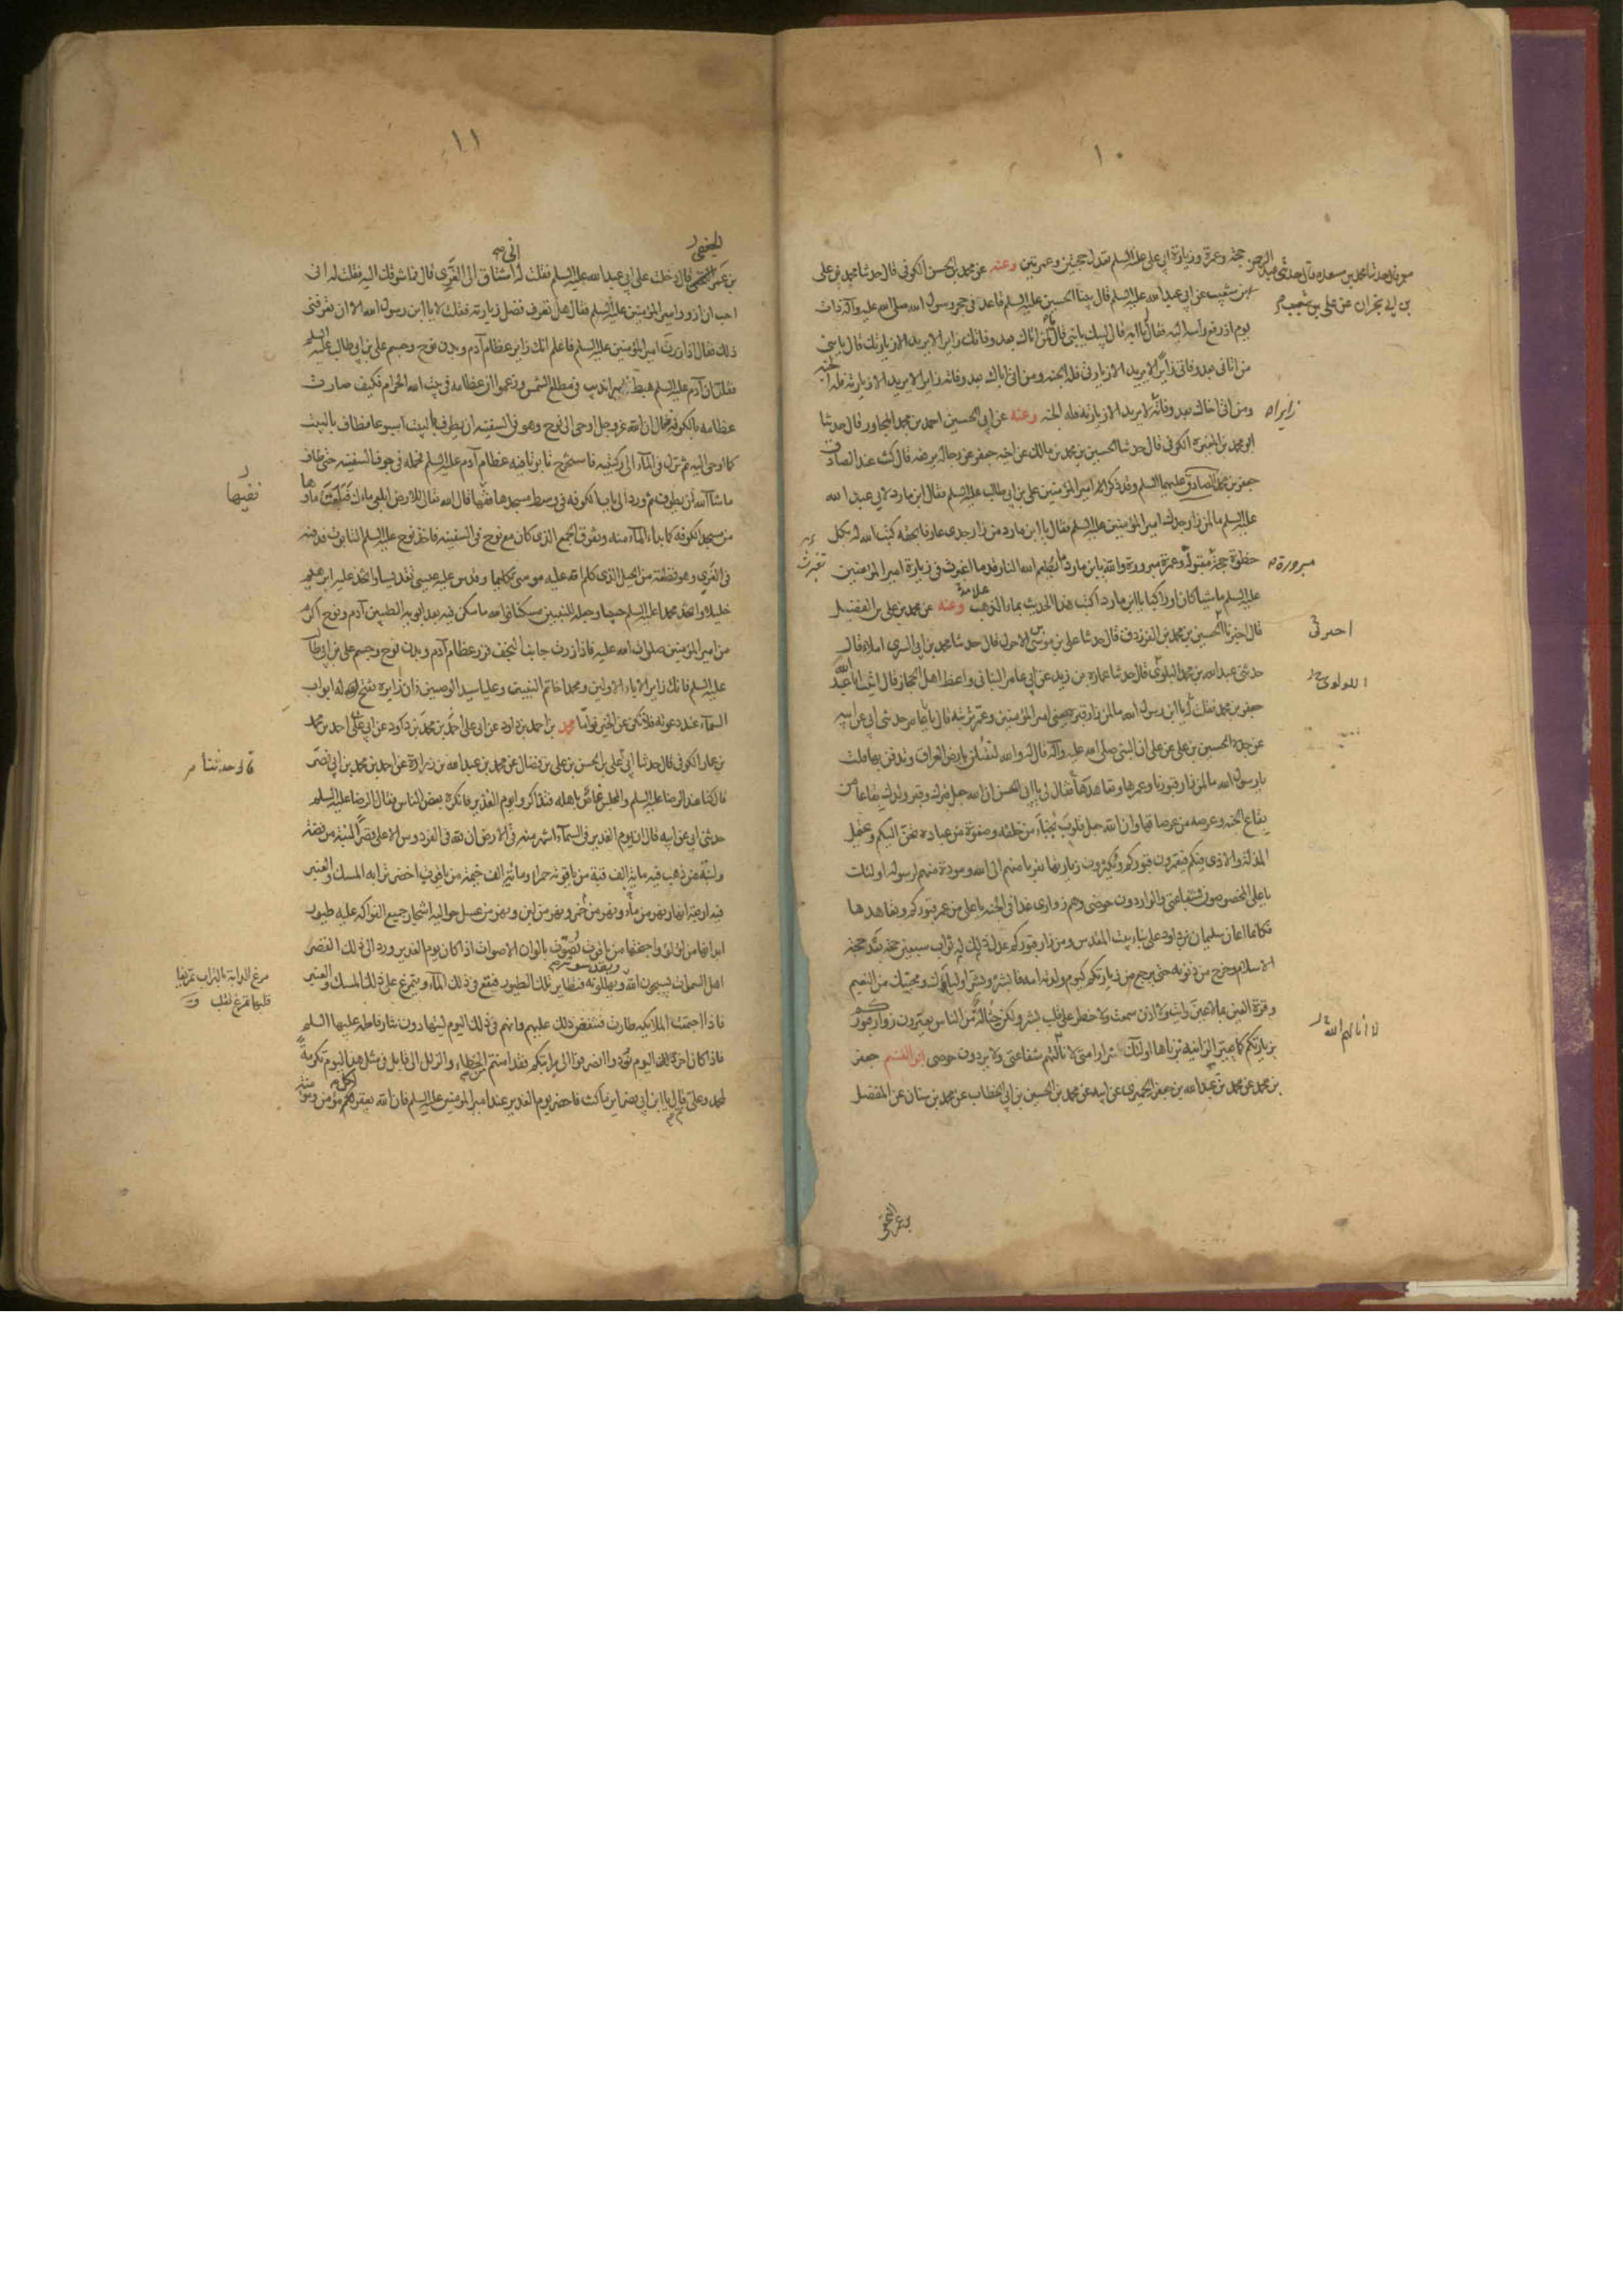 ١٠
حجة وعمرة وزيارة ابي علي عليه السلم تعدل حجتين وعمرتين وعنه عن محمد بن الحسن الكوفي قال حدثنا محمد بن علي
بن شعيب عن ابي عبد الله عليه السلم قال بينا الحسين عليه السلم قاعد في حجر رسول الله صلى الله عليه وآله ذات
يوم اذ رفع راسه اليه فقال يا ابه قال لبيك يا بني قال ما لمن اتاك بعد وفاتك زايرا لا يريد الا زيارتك قال يا بني
من اتاني بعد وفاتي زايرا لا يريد الا زيارتي فله الجنة ومن اتى اباك بعد وفاته زايرا لا يريد الا زيارته فله الجنة
ومن اتى اخاك بعد وفاته لا يريد الا زيارته فله الجنة وعنه عن ابي الحسين احمد بن محمد المجاور قال حدثنا
ابو محمد بن المغيرة الكوفي قال حدثنا الحسين بن محمد بن مالك عن اخيه جعفر عن رجاله يرفعه قال كنت عند الصادق
جعفر بن محمد الصادق عليهما السلم وقد ذكر امير المؤمنين علي بن ابي طالب عليه السلم فقال ابن مارد لابي عبد الله
عليه السلم ما لمن زار جدك امير المؤمنين عليه السلم فقال يا ابن مارد من زار جدي عارفا بحقه كتب الله له بكل
خطوة حجة مقبولة وعمرة مبرورة والله يا بن مارد ما يطعم الله النار قدما اغبرت في زيارة امير المؤمنين
عليه السلم ماشيا كان او راكبا يا ابن مارد اكتب هذا الحديث بماء الذهب وعنه عن محمد بن علي بن الفضل
قال اخبرنا الحسين بن محمد بن الفرزدق قال حدثنا علي بن موسى الاحول قال حدثنا محمد بن ابي السري املاء قال
حدثني عبد الله بن محمد البلوي قال حدثنا عمارة بن زيد عن ابي عامر البناني واعظ اهل الحجاز قال اتيت ابا عبد الله
جعفر بن محمد فقلت له يا ابن رسول الله ما لمن زار قبره يعني امير المؤمنين وعمر تربته قال يا با عامر حدثني ابي عن ابيه
عن جده الحسين بن علي عن علي ان النبي صلى الله عليه وآله قال له والله لتقتلن بارض العراق وتدفن بها قلت
يا رسول الله ما لمن زار قبورنا وعمرها وتعاهدها فقال لي يا با الحسن ان الله جعل قبرك وقبر ولدك بقاعا من
بقاع الجنة وعرصة من عرصاتها وان الله جعل قلوب نجباء من خلقه وصفوة من عباده تحن اليكم وتحتمل
المذلة والاذى فيكم فيعمرون قبوركم ويكثرون زيارتها تقربا منهم الى الله ومودة منهم لرسوله اولئك
يا علي المخصوصون بشفاعتي والواردون حوضي وهم زواري غدا في الجنة يا علي من عمر قبوركم وتعاهدها
فكانما اعان سليمان بن داود على بناء بيت المقدس ومن زار قبوركم عدل ذلك له ثواب سبعين حجة بعد حجة
الاسلام وخرج من ذنوبه حتى يرجع من زيارتكم كيوم ولدته امه فابشر وبشر اوليائك ومحبيك من النعيم
وقرة العين بما لا عين رات ولا اذن سمعت ولا خطر على قلب بشر ولكن حثالة من الناس يعيرون زوار قبوركم
بزيارتكم كما تعير الزانية بزناها اولئك شرار امتي لا نالتهم شفاعتي ولا يردون حوضي ابو القسم جعفر
بن محمد عن محمد بن عبد الله بن جعفر الحميري عن ابيه عن محمد بن الحسين بن ابي الخطاب عن محمد بن سنان عن المفضل
زايرا
مبرورة
احمد
اللولوي
لا انالهم الله
١١
بن عمر الجعفي قال دخلت على ابي عبد الله عليه السلم فقلت له اني اشتاق الى الغري قال فما شوقك اليه فقلت له اني
احب ان ازور امير المؤمنين عليه السلم فقال هل تعرف فضل زيارته فقلت لا يا ابن رسول الله الا ان تعرفني
ذلك فقال اذا زرت امير المؤمنين عليه السلم فاعلم انك زاير عظام آدم وبدن نوح وجسم علي بن ابي طالب عليه السلم
فقلت ان آدم عليه السلم هبط بسرانديب في مطلع الشمس وزعموا ان عظامه في بيت الله الحرام فكيف صارت
عظامه بالكوفة فقال ان الله عز وجل اوحى الى نوح وهو في السفينة ان يطوف بالبيت اسبوعا فطاف بالبيت
كما اوحى اليه ثم نزل في الماء الى ركبتيه فاستخرج تابوتا فيه عظام آدم عليه السلم فحمله في جوف السفينة حتى طاف
ما شاء الله ان يطوف ثم ورد الى باب الكوفة في وسط مسجدها ففيها قال الله تعالى للارض ابلعي ماءك فبلعت ماءها
من مسجد الكوفة كما بدا الماء منه وتفرق الجمع الذي كان مع نوح في السفينة فاخذ نوح عليه السلم التابوت فدفنه
في الغري وهو قطعة من الجبل الذي كلم الله عليه موسى تكليما وقدس عليه عيسى تقديسا واتخذ عليه ابرهيم
خليلا واتخذ محمدا عليه السلم حبيبا وجعله للنبيين مسكنا فوالله ما سكن فيه بعد ابويه الطيبين آدم ونوح اكرم
من امير المؤمنين صلوات الله عليه فاذا زرت جانب النجف فزر عظام آدم وبدن نوح وجسم علي بن ابي طالب
عليه السلم فانك زاير الاباء الاولين ومحمدا خاتم النبيين وعليا سيد الوصيين وان زايره تفتح له ابواب
السماء عند دعوته فلا تكن عن الخير نواما محمد بن احمد بن داود عن ابي علي احمد بن محمد
بن عمار الكوفي قال حدثنا ابي علي بن الحسن بن علي بن فضال عن محمد بن عبد الله بن زرارة عن احمد بن محمد بن ابي نصر
قال كنا عند الرضا عليه السلم والمجلس غاص باهله فتذاكروا يوم الغدير فانكره بعض الناس فقال الرضا عليه السلم
حدثني ابي عن ابيه قال ان يوم الغدير في السماء اشهر منه في الارض ان لله في الفردوس الاعلى قصرا لبنة من فضة
ولبنة من ذهب فيه ماية الف قبة من ياقوتة حمراء ومائة الف خيمة من ياقوت اخضر ترابه المسك والعنبر
فيه اربعة انهار نهر من ماء ونهر من خمر ونهر من لبن ونهر من عسل حواليه اشجار جميع الفواكه عليه طيور
ابدانها من لؤلؤ واجنحتها من ياقوت تصوت بالوان الاصوات اذا كان يوم الغدير ورد الى ذلك القصر
اهل السموات يسبحون الله ويقدسونه ويهللونه فتطاير تلك الطيور فتقع في ذلك الماء وتتمرغ على ذلك المسك والعنبر
فاذا اجتمعت الملايكة طارت فتنفض ذلك عليهم وانهم في ذلك اليوم ليتهادون نثار فاطمة عليها السلم
فاذا كان اخر ذلك اليوم نودوا انصرفوا الى مراتبكم فقد امنتم الخطاء والزلل الى قابل في مثل هذا اليوم تكرمة
لمحمد وعلي ثم قال يا ابن ابي نصر اين ما كنت فاحضر يوم الغدير عند امير المومنين عليه السلم فان الله يغفر لكل مؤمن ومؤمنة
ففيها
قال حدثنا